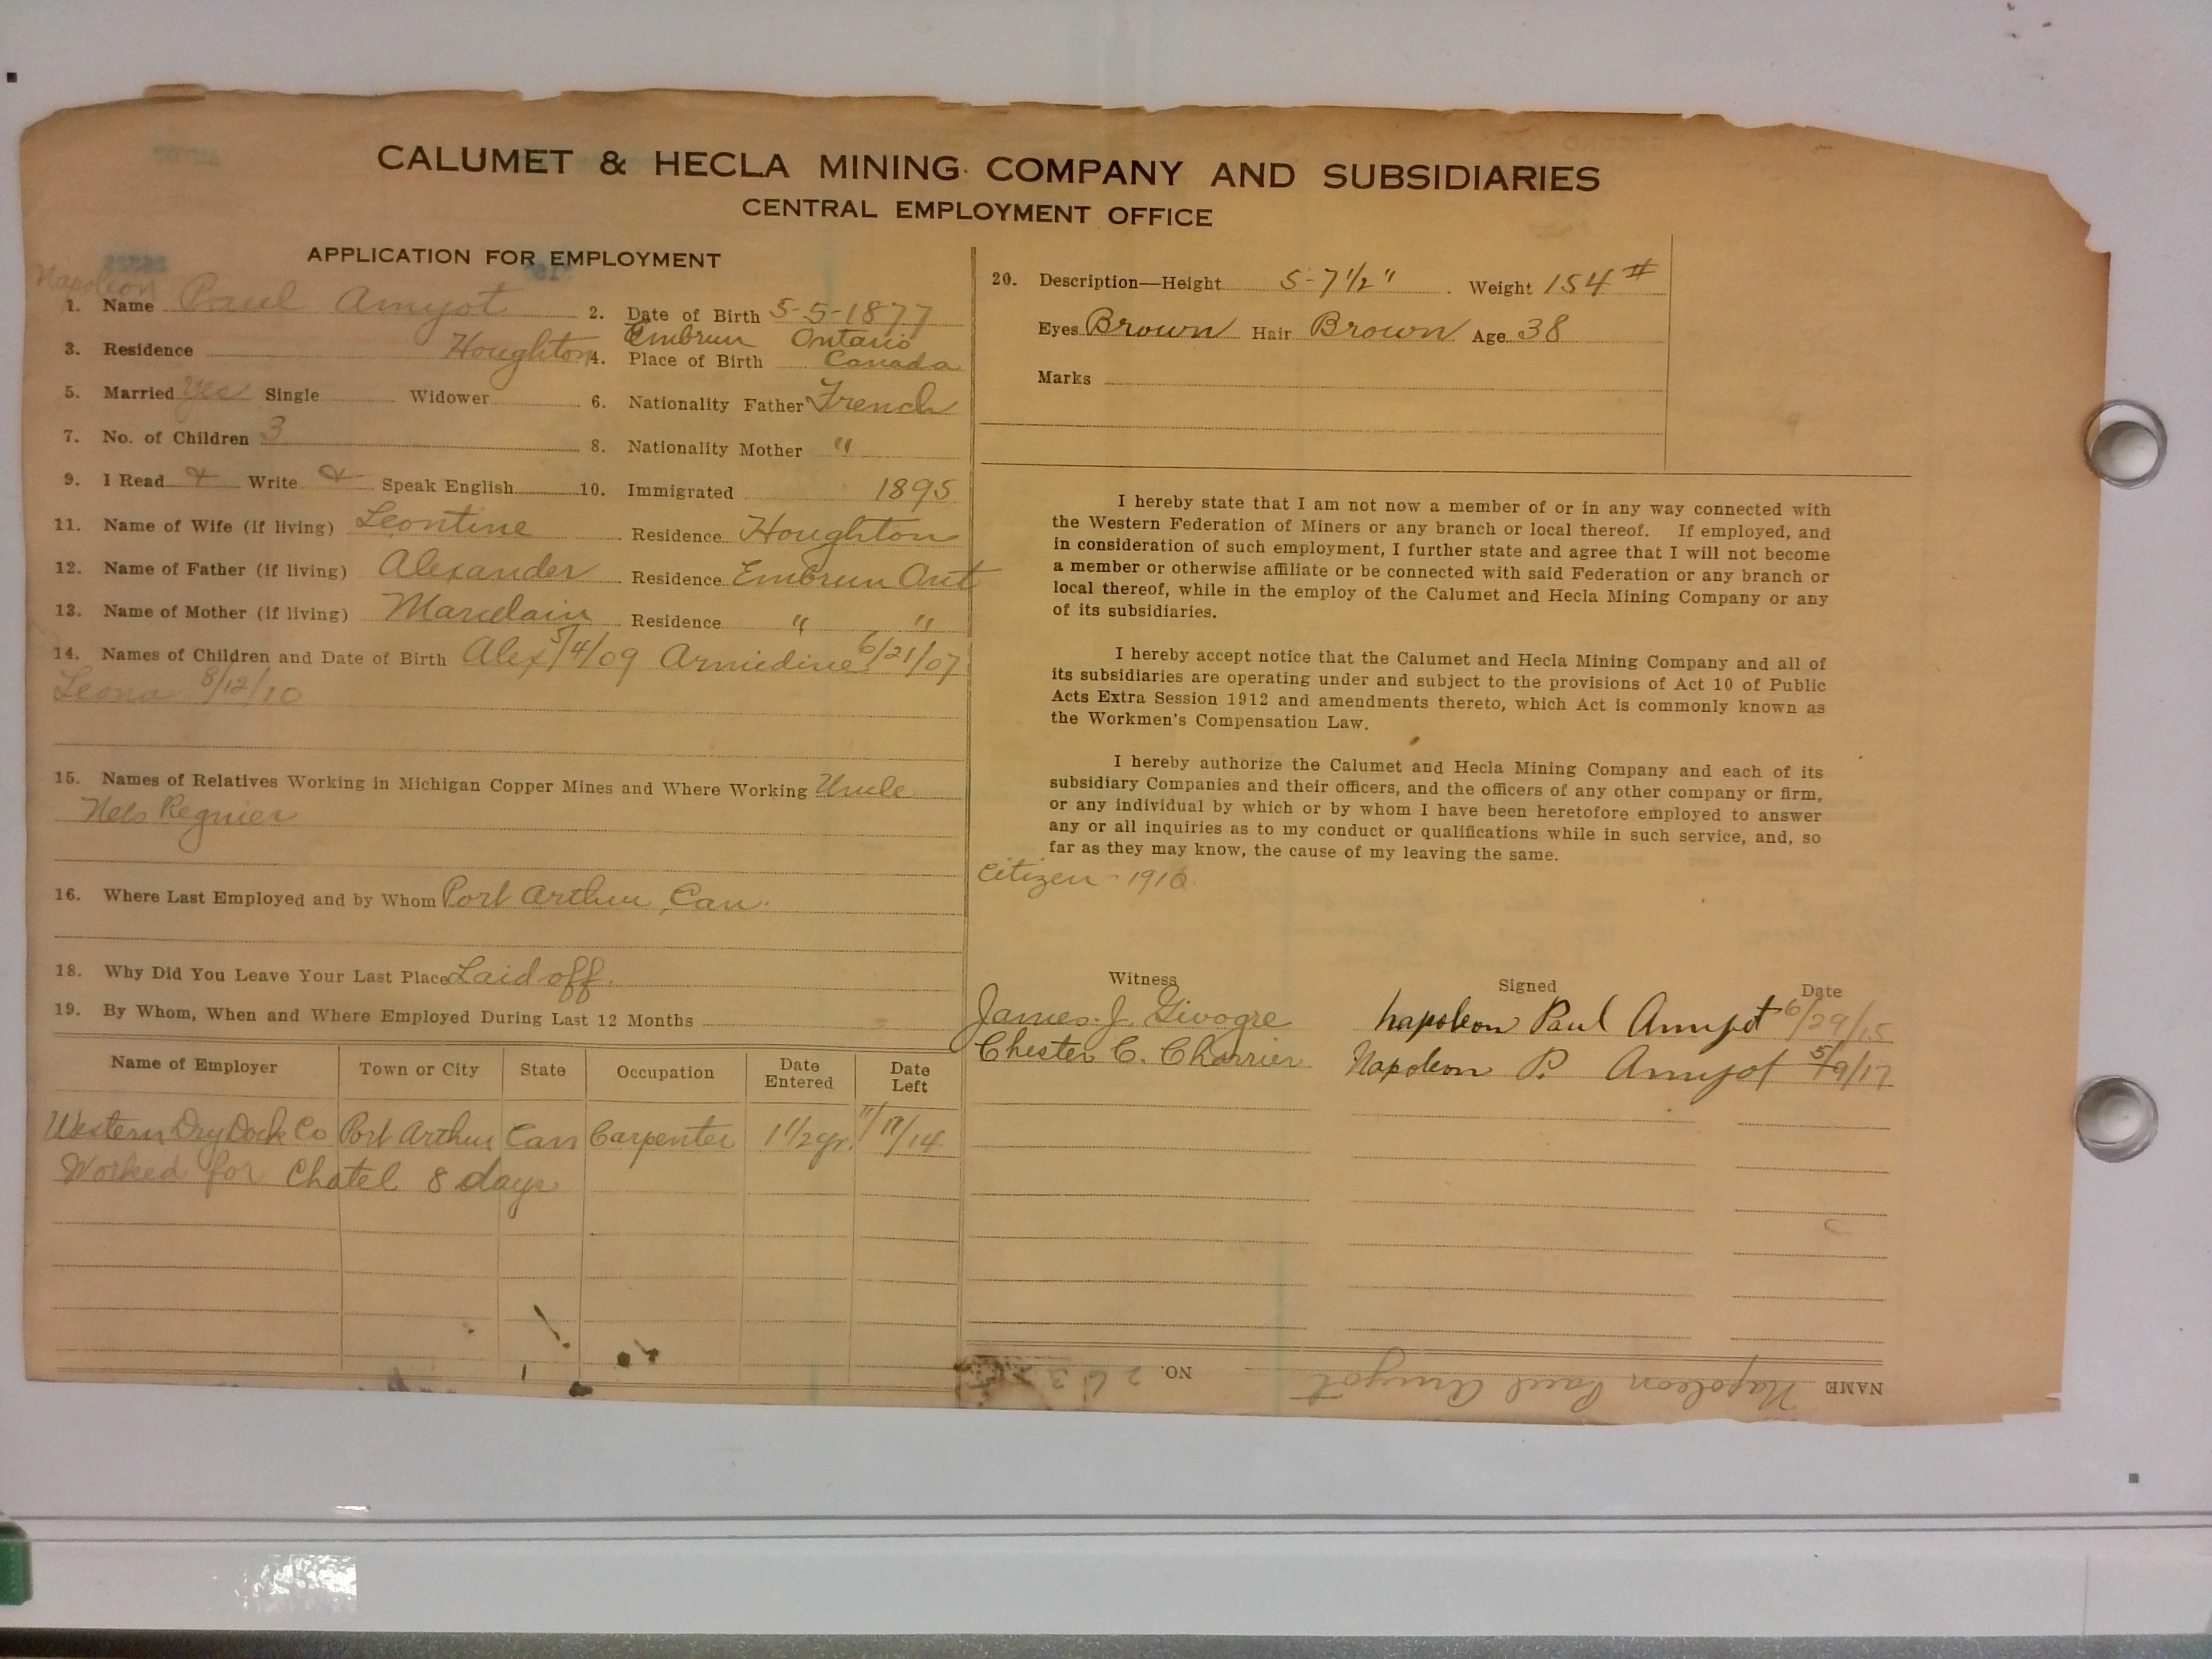 CALUMET & HECLA MINING COMPANY AND SUBSIDIARIES
CENTRAL EMPLOYMENT OFFICE
APPLICATION FOR EMPLOYMENT
Napoleon
1. Name Paul Amyot
2. Date of Birth 5-5-1877
3. Residence Houghton
Embrun Ontario
4. Place of Birth Canada
5. Married yes Single Widower
6. Nationality Father French
7. No. of Children 3
8. Nationality Mother "
9. I Read + Write + Speak English
10. Immigrated 1895
11. Name of Wife (if living) Leontine Residence Houghton
12. Name of Father (if living) Alexander Residence Embrun Ont
13. Name of Mother (if living) Residence " "
14. Names of Children and Date of Birth Alex 5/4/09 Armidine 6/21/07
Leona 8/12/10
15. Names of Relatives Working in Michigan Copper Mines and Where Working Uncle
Nels Regnier
16. Where Last Employed and by Whom Port Arthur, Can.
18. Why Did You Leave Your Last Place Laid off.
19. By Whom, When and Where Employed During Last 12 Months
Name of Employer Town or City State Occupation Date Entered Date Left
Western Dry Dock Co Port Arthur Can Carpenter 1 1/2 yr. /14
Worked for Chatel 8 days
20. Description—Height 5-7 1/2" Weight 154 #
Eyes Brown Hair Brown Age 38
Marks
I hereby state that I am not now a member of or in any way connected with
the Western Federation of Miners or any branch or local thereof. If employed, and
in consideration of such employment, I further state and agree that I will not become
a member or otherwise affiliate or be connected with said Federation or any branch or
local thereof, while in the employ of the Calumet and Hecla Mining Company or any
of its subsidiaries.
I hereby accept notice that the Calumet and Hecla Mining Company and all of
its subsidiaries are operating under and subject to the provisions of Act 10 of Public
Acts Extra Session 1912 and amendments thereto, which Act is commonly known as
the Workmen's Compensation Law.
I hereby authorize the Calumet and Hecla Mining Company and each of its
subsidiary Companies and their officers, and the officers of any other company or firm,
or any individual by which or by whom I have been heretofore employed to answer
any or all inquiries as to my conduct or qualifications while in such service, and, so
far as they may know, the cause of my leaving the same.
Citizen - 1910.
Witness Signed Date
James J. Givogre Napoleon Paul Amyot 6/29/15
Chester C. Charrier Napoleon P. Amyot 5/9/17
NAME Napoleon Paul Amyot NO.